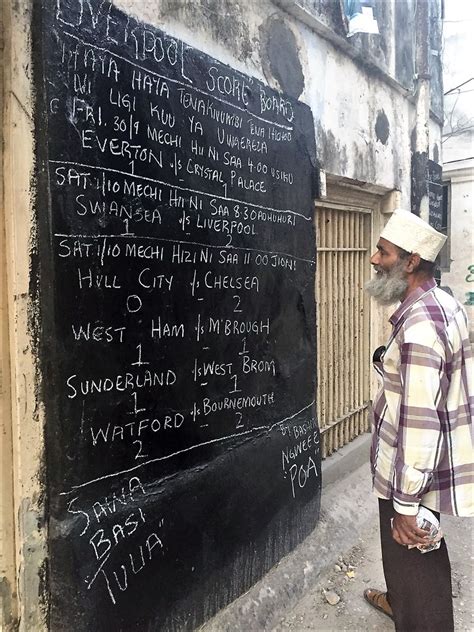 LIVERPOOL SCORE BOARD
HAYA HAYA TENA
NI LIGI KUU YA UINGEREZA
FRI. 30/9 MECHI HII NI SAA 4:00 USIKU
EVERTON V/S CRYSTAL PALACE
1 1
SAT 1/10 MECHI HII NI SAA 8:30 ADHUHURI
SWANSEA V/S LIVERPOOL
1 2
SAT 1/10 MECHI HIZI NI SAA 11:00 JIONI
HULL CITY V/S CHELSEA
0 2
WEST HAM V/S M'BROUGH
1 1
SUNDERLAND V/S WEST BROM
1 1
WATFORD V/S BOURNEMOUTH
2 2
SAWA
BASI
TULIA"
BY
"POA"